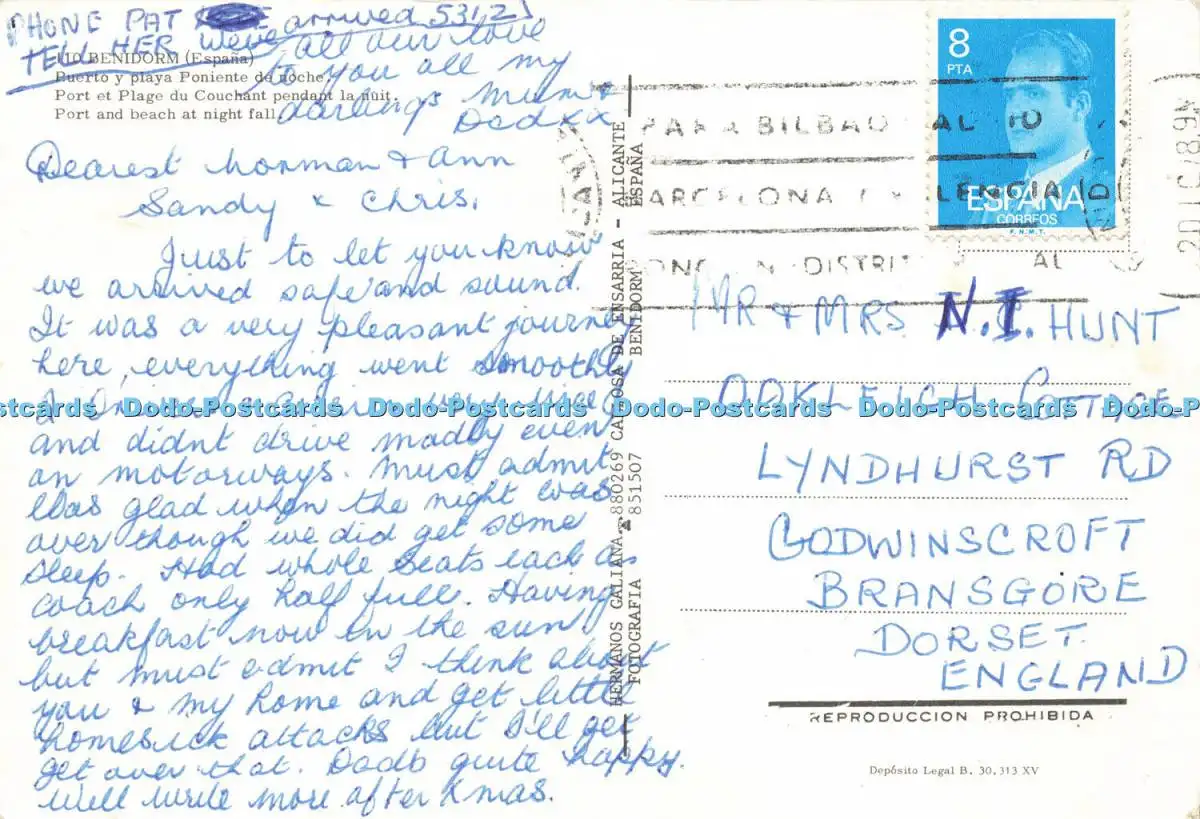 PHONE PAT arrived 53121
TELL HER We've
all our love
to you all my
darlings Mum &
Dad xx
110 BENIDORM (España)
Puerto y playa Poniente de noche.
Port et Plage du Couchant pendant la nuit.
Port and beach at night fall.
Dearest Norman & Ann
Sandy & Chris.
Just to let you know
we arrived safe and sound.
It was a very pleasant journey
here, everything went smoothly
and didnt drive madly even
on motorways. Must admit
Was glad when the night was
over though we did get some
sleep. Had whole seats each as
coach only half full. Having
breakfast now in the sun
but must admit I think about
you & my home and get little
homesick attacks but I'll get
get over that. Dads quite happy.
Will write more after Xmas.
HERMANOS GALIANA. 880269 CALLOSA DE ENSARRIA - ALICANTE
FOTOGRAFIA 851507 BENIDORM ESPAÑA
8
PTA
ESPAÑA
CORREOS
F.N.M.T.
PARA BILBAO
BARCELONA VALENCIA
DISTRITO
MR & MRS N.I. HUNT
OAKLEIGH COTTAGE
LYNDHURST RD
GODWINSCROFT
BRANSGORE
DORSET.
ENGLAND
REPRODUCCION PROHIBIDA
Depósito Legal B. 30.313 XV
Dodo-Postcards Dodo-Postcards Dodo-Postcards Dodo-Postcards